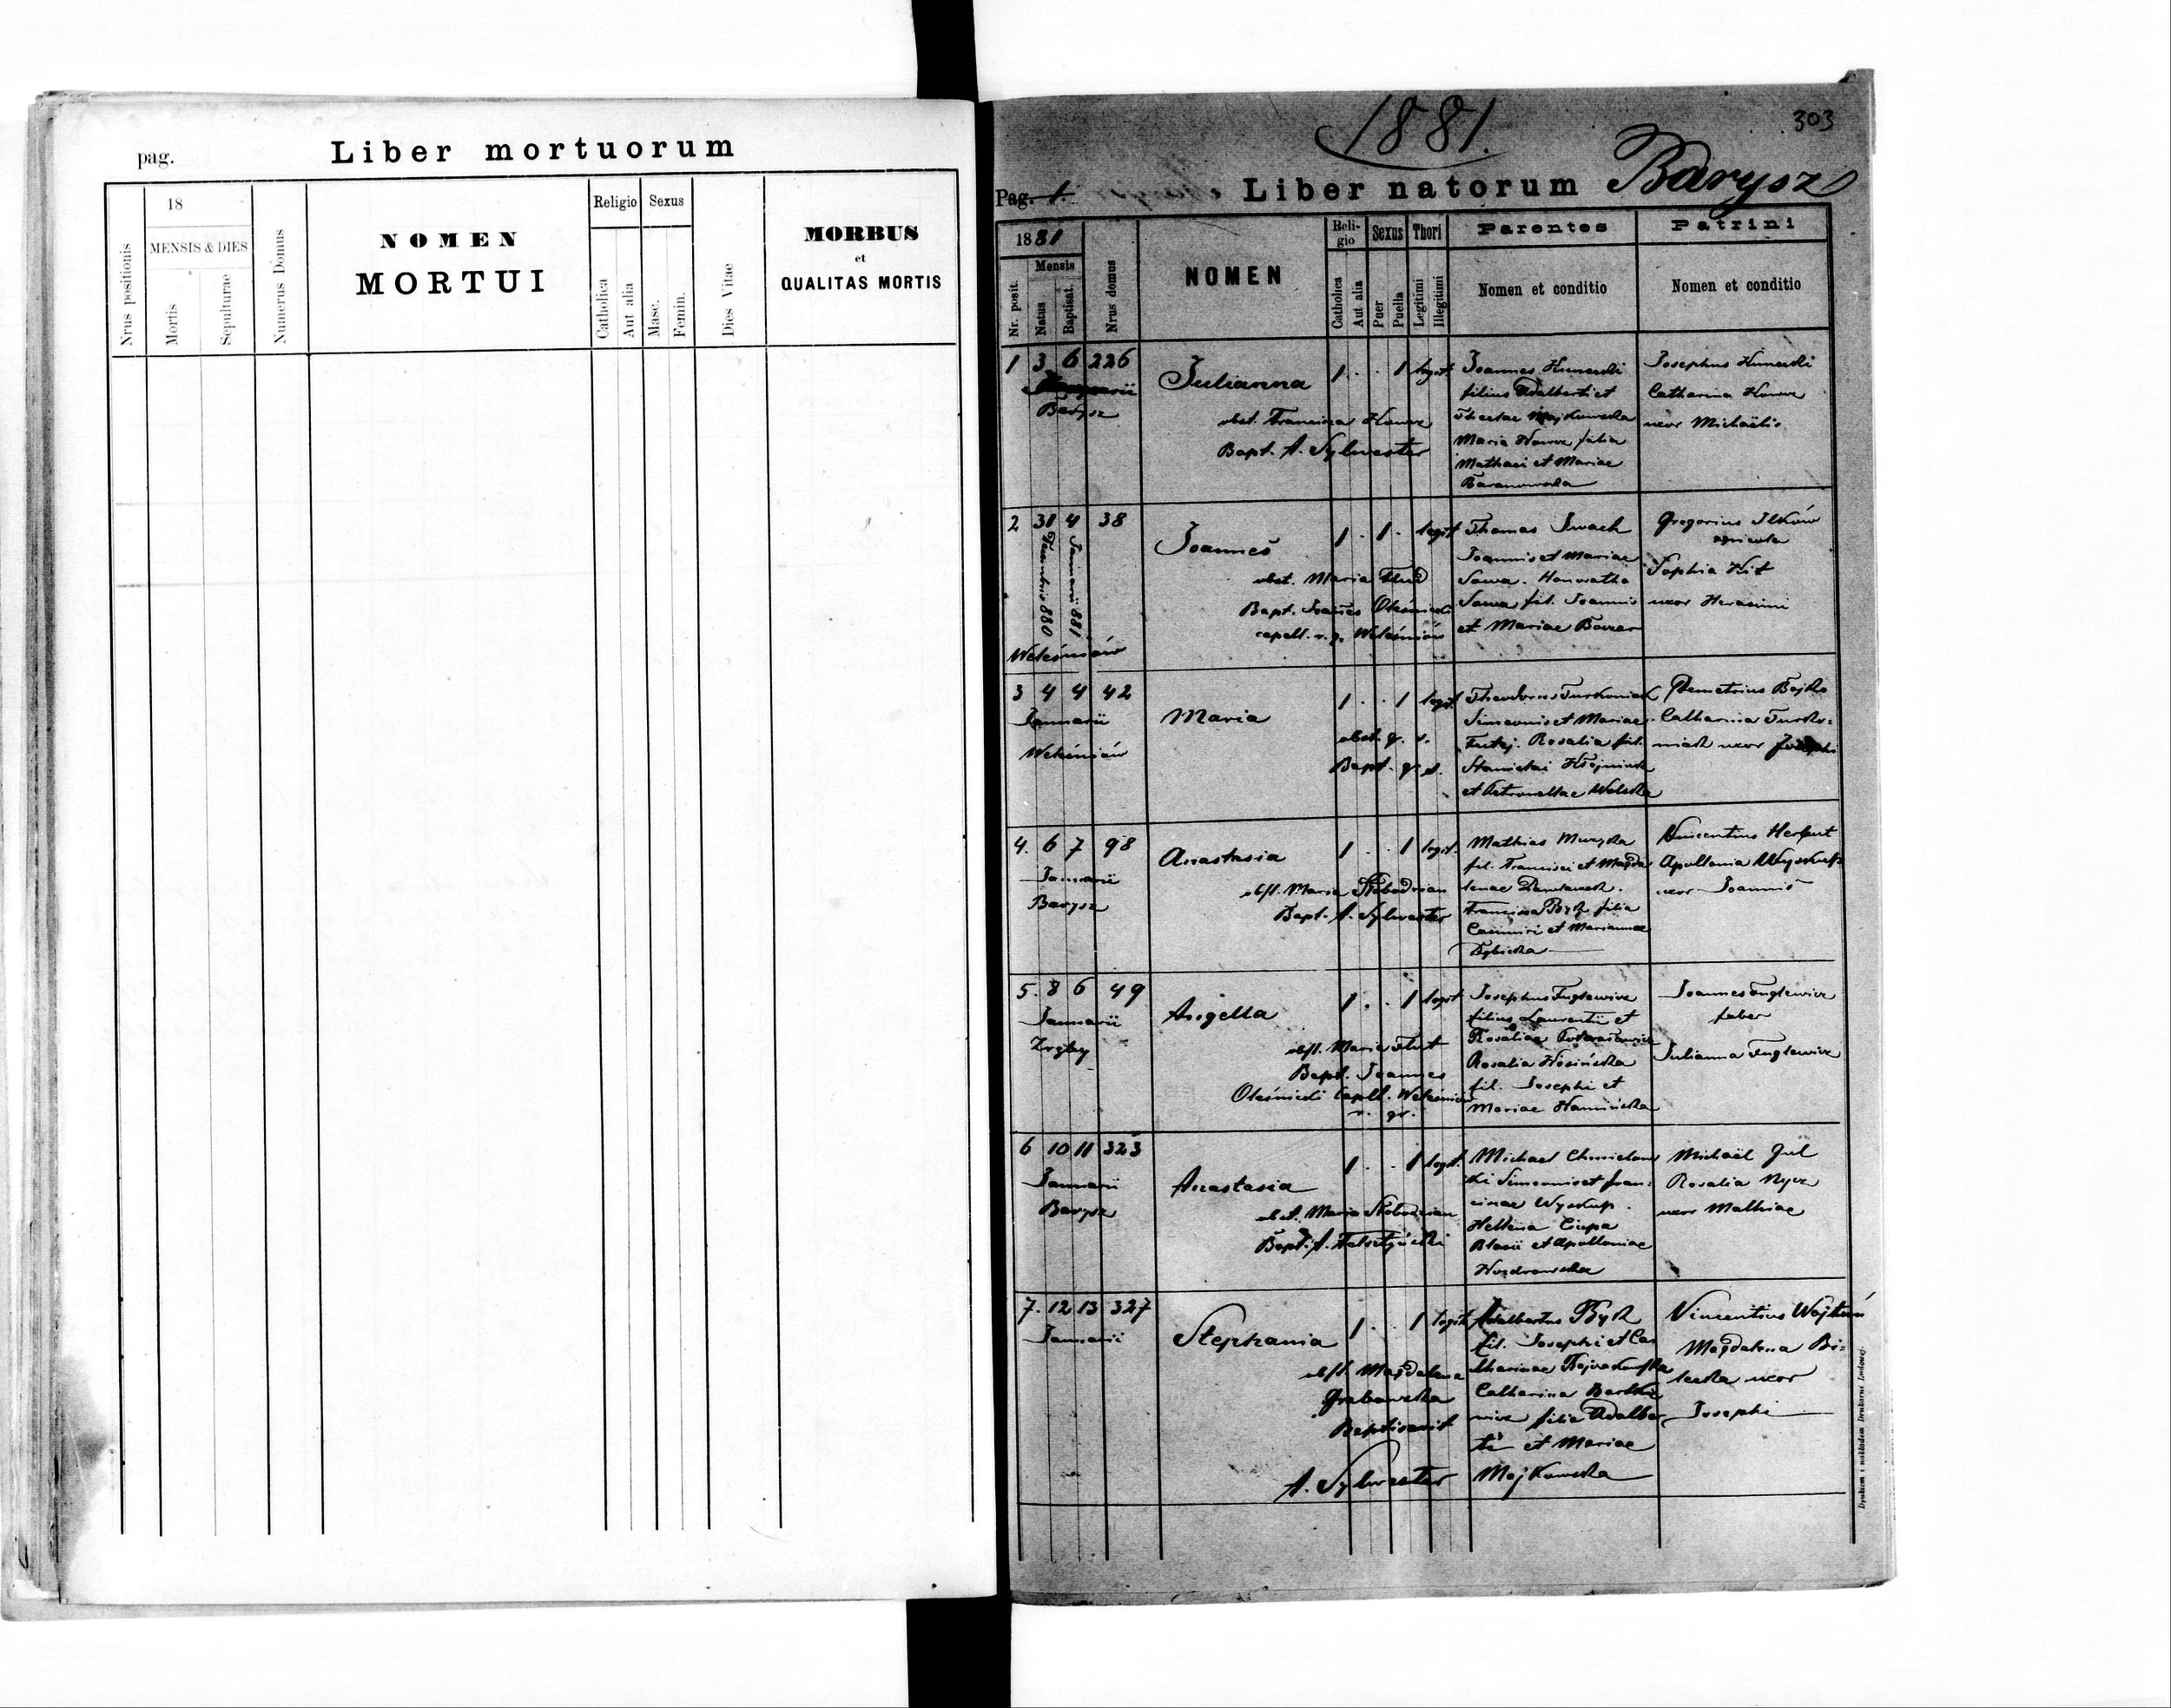 pag.
Liber mortuorum
Nrus positionis
18
MENSIS & DIES
Mortis
Sepulturae
Numerus Domus
NOMEN
MORTUI
Religio
Catholica
Aut alia
Sexus
Masc.
Femin.
Dies Vitae
MORBUS
et
QUALITAS MORTIS
1881.
303
Pag. 1.
Liber natorum Barysz
1881
Nr. posit.
Mensis
Natus
Baptisat.
Nrus domus
NOMEN
Religio
Catholica
Aut alia
Sexus
Puer
Puella
Thori
Legitimi
Illegitimi
Parentes
Nomen et conditio
Patrini
Nomen et conditio
1 3 6 226
Barysz
Julianna
obst. Francisca
Bapt. A. Sylwester
1 . . 1 legit.
Joannes
filius Adalberti et
Majkowska
Maria filia
Mathaei et Mariae
Baranowska
Josephus
Catharina
uxor Michaëlis
2 31 4 38
Decembris 880
Januarii 881
Weleśniów
Joannes
obst. Maria
Bapt. Joannes Oleśnicki
capell. r. g. Weleśniów
1 . 1 . legit
Thomas
Joannis et Mariae
Sawa. Honoratha
Sawa fil. Joannis
et Mariae
Gregorius Ilków
agricola
Sophia Kit
uxor Herasimi
3 4 4 42
Januarii
Weleśniów
Maria
obst. q. s.
Bapt. q. s.
1 . . 1 legit.
Theodorus Turkoniak
Simeonis et Mariae
Rosalia fil.
Stanislai
et Petronellae Wolska
Demetrius Bojko
Catharina Turko-
niak uxor Josephi
4. 6 7 98
Januarii
Barysz
Anastasia
obst. Maria Skobodzian
Bapt. A. Sylwester
1 . . 1 legit.
Mathias
fil. Francisci et Magda
lenae
Francisca Byk filia
Casimiri et Mariannae
Vincentius Herbut
Apollonia Wyskup
uxor Joannis
5. 8 6 49
Januarii
Angella
obst. Maria
Bapt. Joannes
Oleśnicki Capell. Weleśniów
r. gr.
1 . . 1 legit
Josephus Fuglewicz
filius Laurentii et
Rosaliae
Rosalia
fil. Josephi et
Mariae Kamińska
Joannes Fuglewicz
faber
Julianna Fuglewicz
6 10 11 323
Januarii
Barysz
Anastasia
obst. Maria Skobodzian
Bapt. A.
1 . . 1 legit.
Michael
ki Simeonis et Fran-
ciscae Wyskup.
Hellena Ciupa
Blasii et Apolloniae
Michaël Gul
Rosalia Nycz
uxor Mathiae
7. 12 13 327
Januarii
Stephania
obst. Magdalena
Grabowska
Baptisavit
A. Sylwester
1 . . 1 legit.
Adalbertus Byk
fil. Josephi et Ca
tharinae
Catharina
filia Adalber
ti et Mariae
Majkowska
Vincentius
Magdalena Bi-
lecka uxor
Josephi
Drukiem i nakładem Drukarni Ludowej.